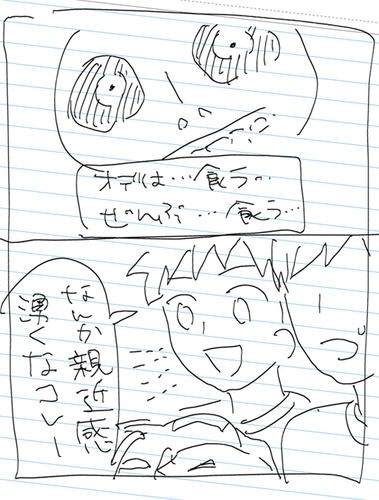 オデは…食う…
ぜんぶ…食う…
なんか親近感
湧くなコレー